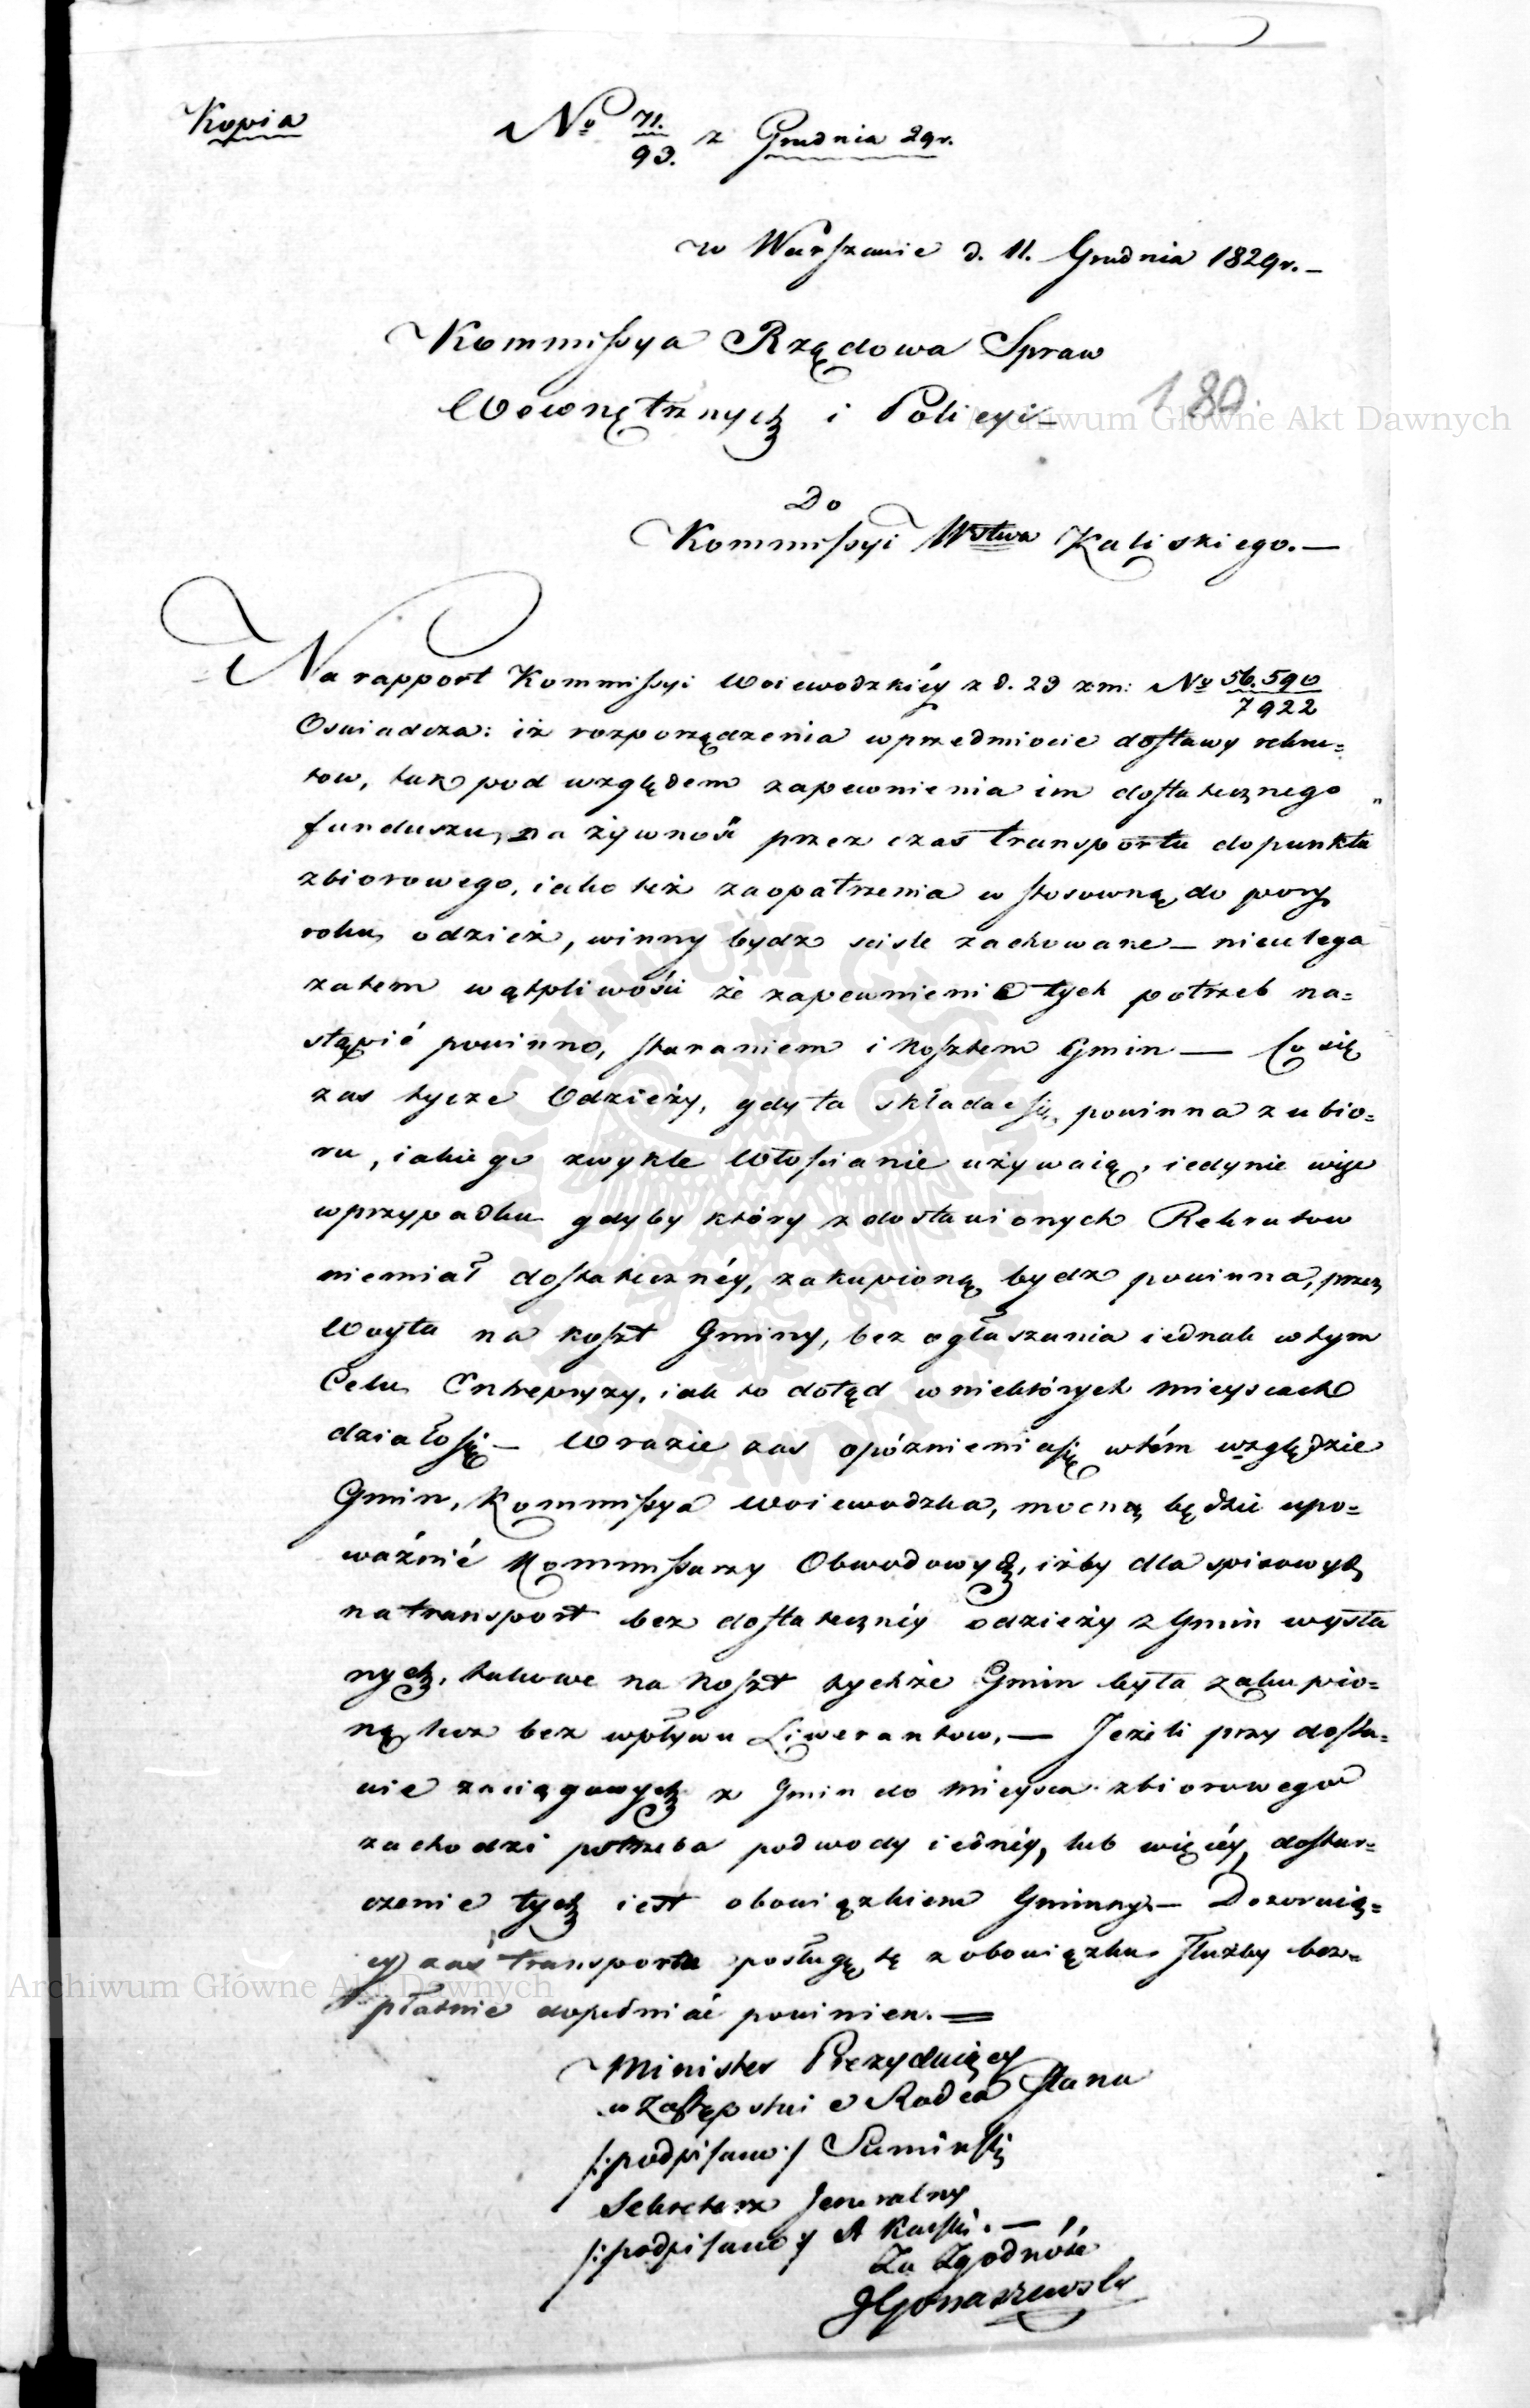 Kopia
No 71./93. z Grudnia 29r.
w Warszawie d. 11. Grudnia 1829r.–
Kommissya Rządowa Spraw
Wewnętrznych i Policyi–
180.
Do
Kommissyi Wstwa Kaliskiego.—
Na rapport Kommissyi Woiewodzkiéy z d. 23 z.m: No 56.590/7922
Oswiadcza: iż rozporządzenia w przedmiocie dostawy rekru=
tow, tak pod względem zapewnienia im dostatecznego
funduszu, na żywność przez czas transportu do punktu
zbiorowego, iako też zaopatrzenia w stosowną do pory
roku odzież, winny bydz scisle zachowane – nieulega
zatem wątpliwości że zapewnienie tych potrzeb na=
stąpić powinno, staraniem i kosztem Gmin — Co się
zas tycze Odzieży, gdy ta składać się powinna z ubio=
ru, iakiego zwykle Włoscianie używaią, iedynie więc
w przypadku gdyby który z dostawionych Rekrutow
niemiał dostatecznéy, zakupioną bydz powinna, przez
Woyta na koszt Gminy, bez ogłaszania iednak w tym
Celu Entrepryzy, iak to dotąd w niektórych mieyscach
działo się – W razie zas opóznienia się w tém względzie
Gmin, Kommissya Woiewodzka, mocną będzie upo=
ważnić Kommissarzy Obwodowych, iżby dla spisowych
na transport bez dostatecznéy odzieży z Gmin wysła
nych, takowa na koszt tychże Gmin była zakupio=
ną lecz bez wpływu Liwerantow.— Jeżeli przy dosta=
wie zaciągowych z Gmin do mieysca zbiorowego
zachodzi potrzeba podwody iednéy, lub więcéy, dostar=
czenie tych iest obowiązkiem Gminnym– Dozoruią=
cy zaś transportu posługę tę z obowiązku służby bez=
płatnie dopełniać powinien. =
Minister Prezyduiący
w Zastępstwie Radca Stanu
/:podpisano:/ Suminski
Sekretarz Jeneralny
/:podpisano:/ A Karski.—
Za Zgodność